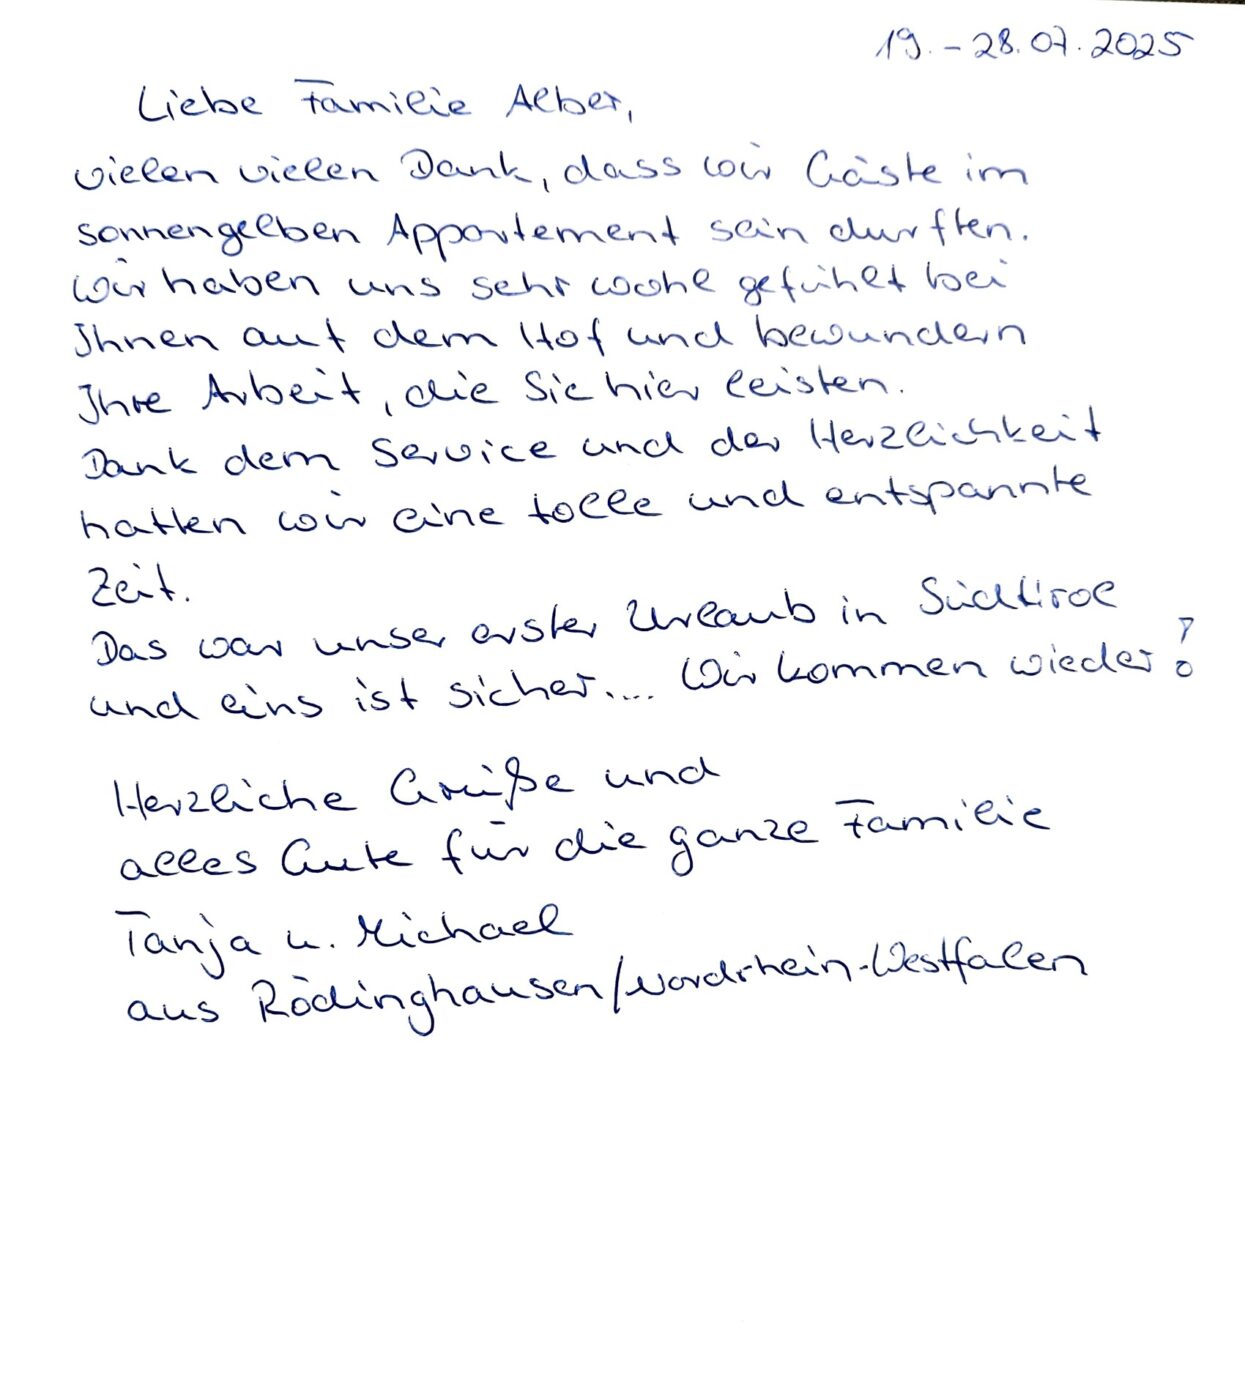 19. - 28.07.2025
Liebe Familie Alber,
vielen vielen Dank, dass wir Gäste im
sonnengelben Appartement sein durften.
Wir haben uns sehr wohl gefühlt bei
Ihnen auf dem Hof und bewundern
Ihre Arbeit, die Sie hier leisten.
Dank dem Service und der Herzlichkeit
hatten wir eine tolle und entspannte
Zeit.
Das war unser erster Urlaub in Südtirol
und eins ist sicher.... Wir kommen wieder!
Herzliche Grüße und
alles Gute für die ganze Familie
Tanja u. Michael
aus Rödinghausen/Nordrhein-Westfalen